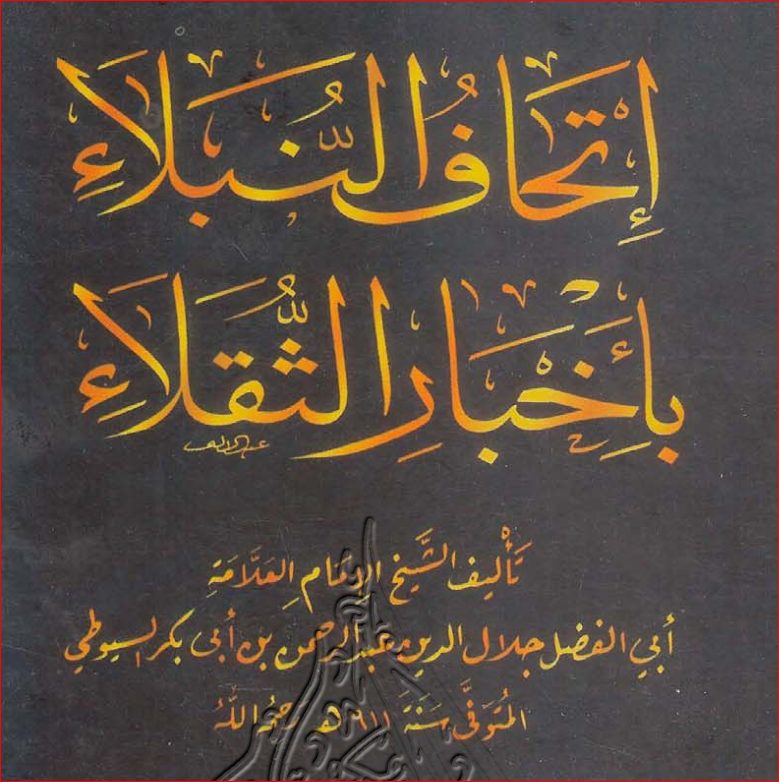 إِتْحَافُ النُّبَلَاءِ
بِأَخْبَارِ الثُّقَلَاءِ
تَأْليف الشَّيخ الإمَام العَلَّامَة
أبي الفضل جلال الدين عبد الرحمن بن أبي بكر السيوطي
المُتَوفَّى سَنَة ٩١١ هـ رحمه اللهُ